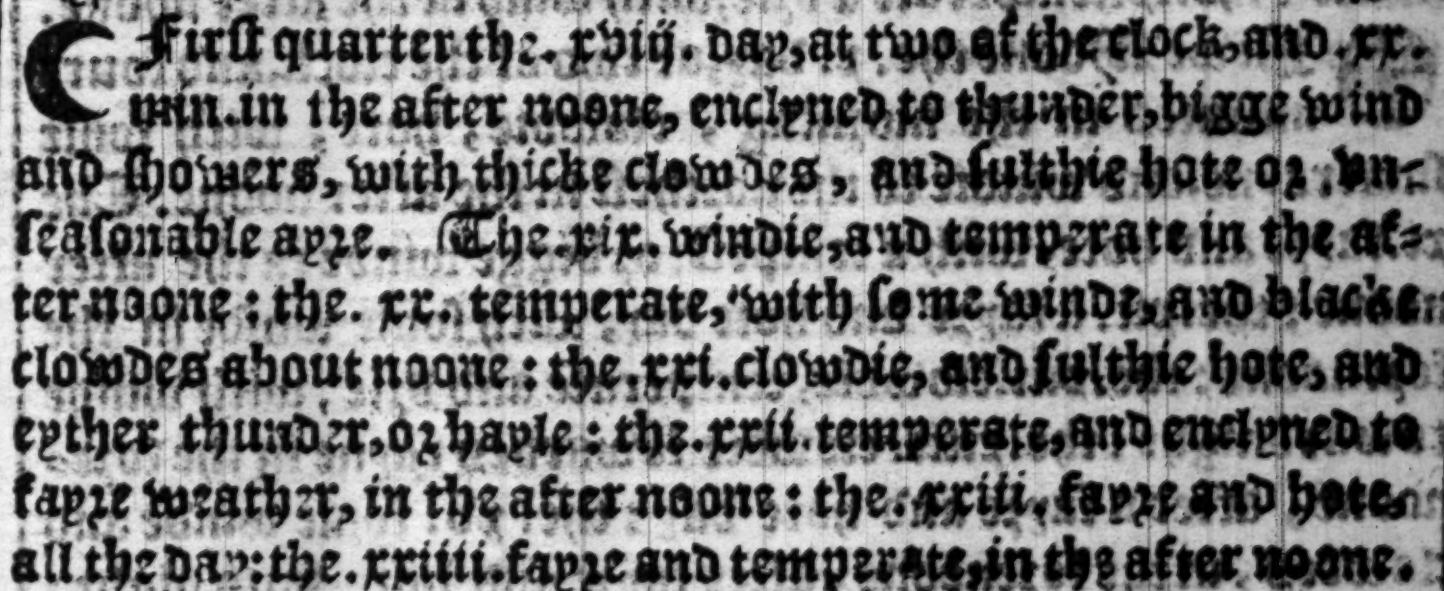 First quarter the. xviij. day, at two of the clock, and .xx.
min. in the after noone, enclyned to thunder, bigge wind
and showers, with thicke clowdes, and sulthie hote or vn-
seasonable ayre. The .xix. windie, and temperate in the af-
ter noone : the. xx. temperate, with some winde, and blacke
clowdes about noone : the .xxi. clowdie, and sulthie hote, and
eyther thunder, or hayle : the .xxii. temperate, and enclyned to
fayre weather, in the after noone : the .xxiii. fayre and hote,
all the day: the .xxiiii. fayre and temperate, in the after noone.